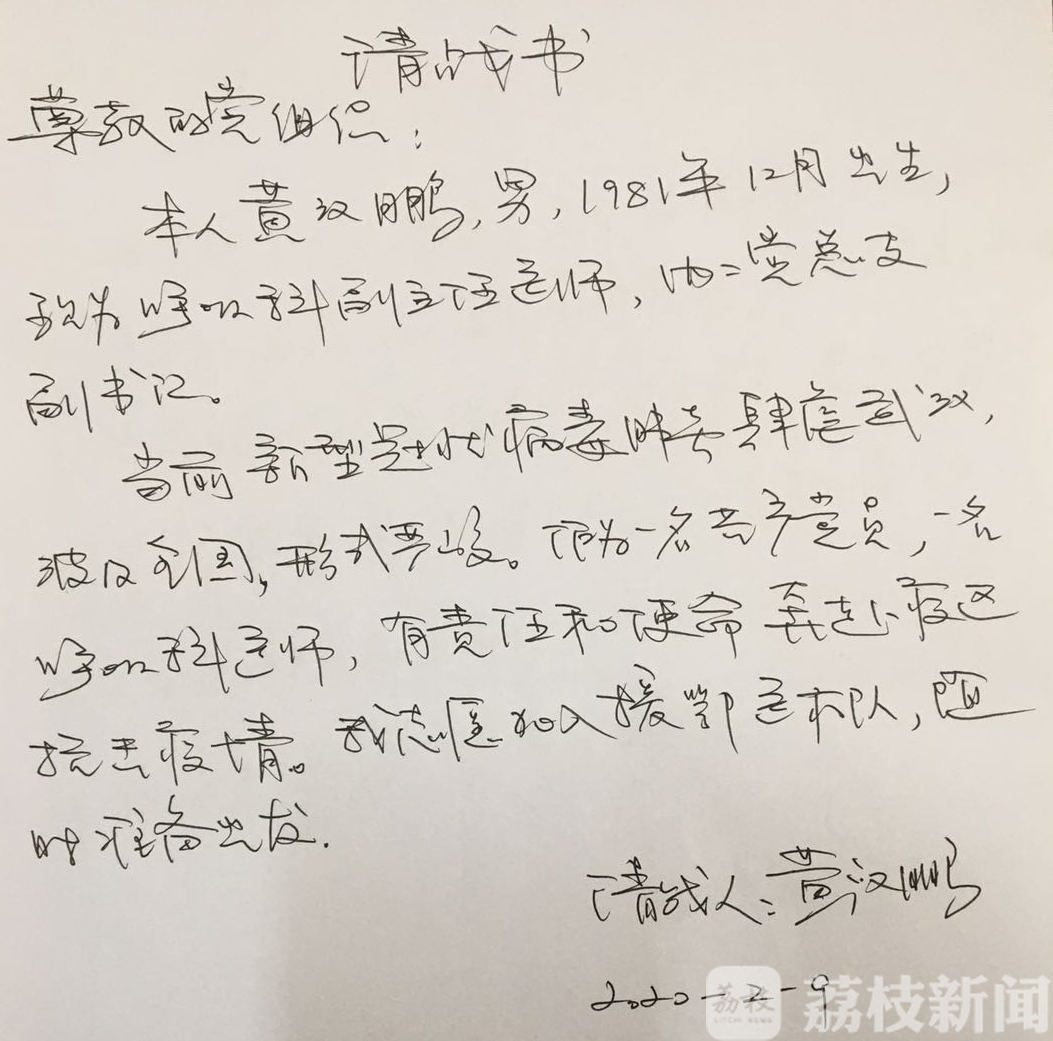 请战书
尊敬的党组织：
本人黄汉鹏，男，1981年12月出生，
现为呼吸科副主任医师，内二党总支
副书记。
当前新型冠状病毒肺炎肆虐武汉，
波及全国，形式严峻。作为一名共产党员，一名
呼吸科医师，有责任和使命奔赴疫区
抗击疫情。我志愿加入援鄂医疗队，随
时准备出发.
请战人：黄汉鹏
2020-2-9
荔枝
LITCHI NEWS
荔枝新闻